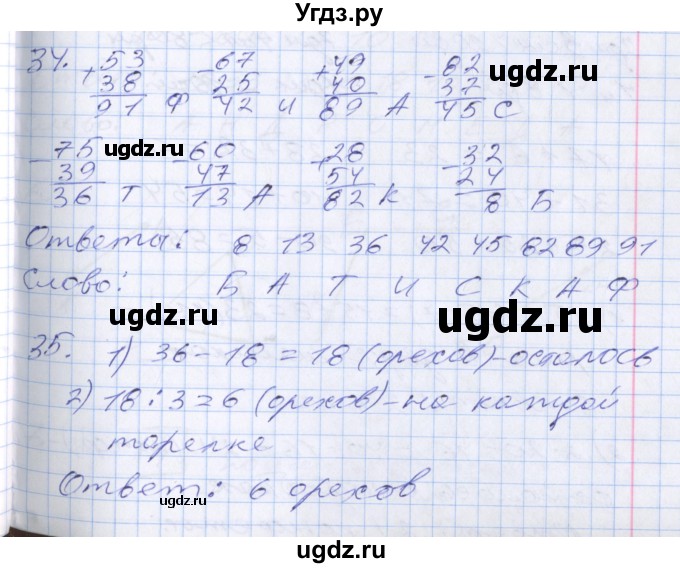 Угдз.ру
34. +53 -67 +49 -82
38 25 40 37
91 Ф 42 И 89 А 45 С
ugdz.ru
-75 -60 +28 -32
39 47 54 24
36 Т 13 А 82 К 8 Б
ugdz.ru
Ответы: 8 13 36 42 45 82 89 91
Слово: Б А Т И С К А Ф
ugdz.ru ugdz.ru
35. 1) 36-18=18 (орехов)-осталось
2) 18:3=6 (орехов)-на каждой
тарелке
ugdz.ru
Ответ: 6 орехов
ugdz.ru
ugdz.ru